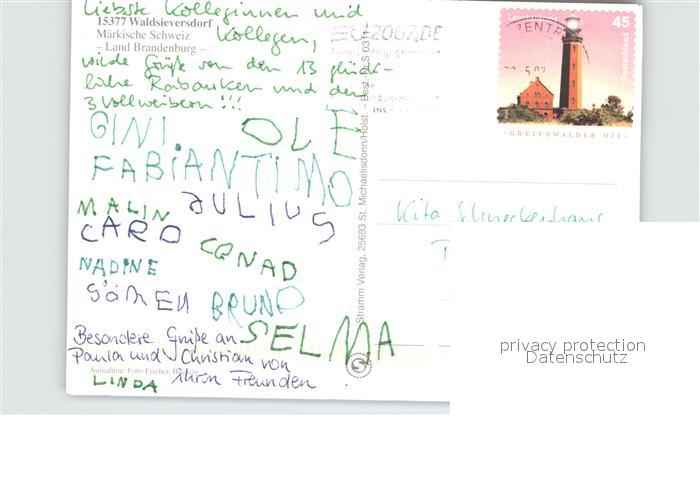 Liebste Kolleginnen und
Kollegen,
15377 Waldsieversdorf
Märkische Schweiz
– Land Brandenburg –
wilde Grüße von den 13 glück-
lichen Rabauken und den
3 Vollweibern!!!
GINI OLE
FABIAN TIMO
MALIN JULIUS
CARO CONAD
NADINE
BRUNO
SELMA
Besondere Grüße an
Paula und Christian von
ihren Freunden
LINDA
Aufnahme: Foto-Fischer,
Stramm Verlag, 25693 St. Michaelisdonn/Holst. – Best.-Nr.
2007.DE
ZENTR
Leuchttürme
45
Deutschland
·GREIFSWALDER OIE·
Kita
privacy protection
Datenschutz